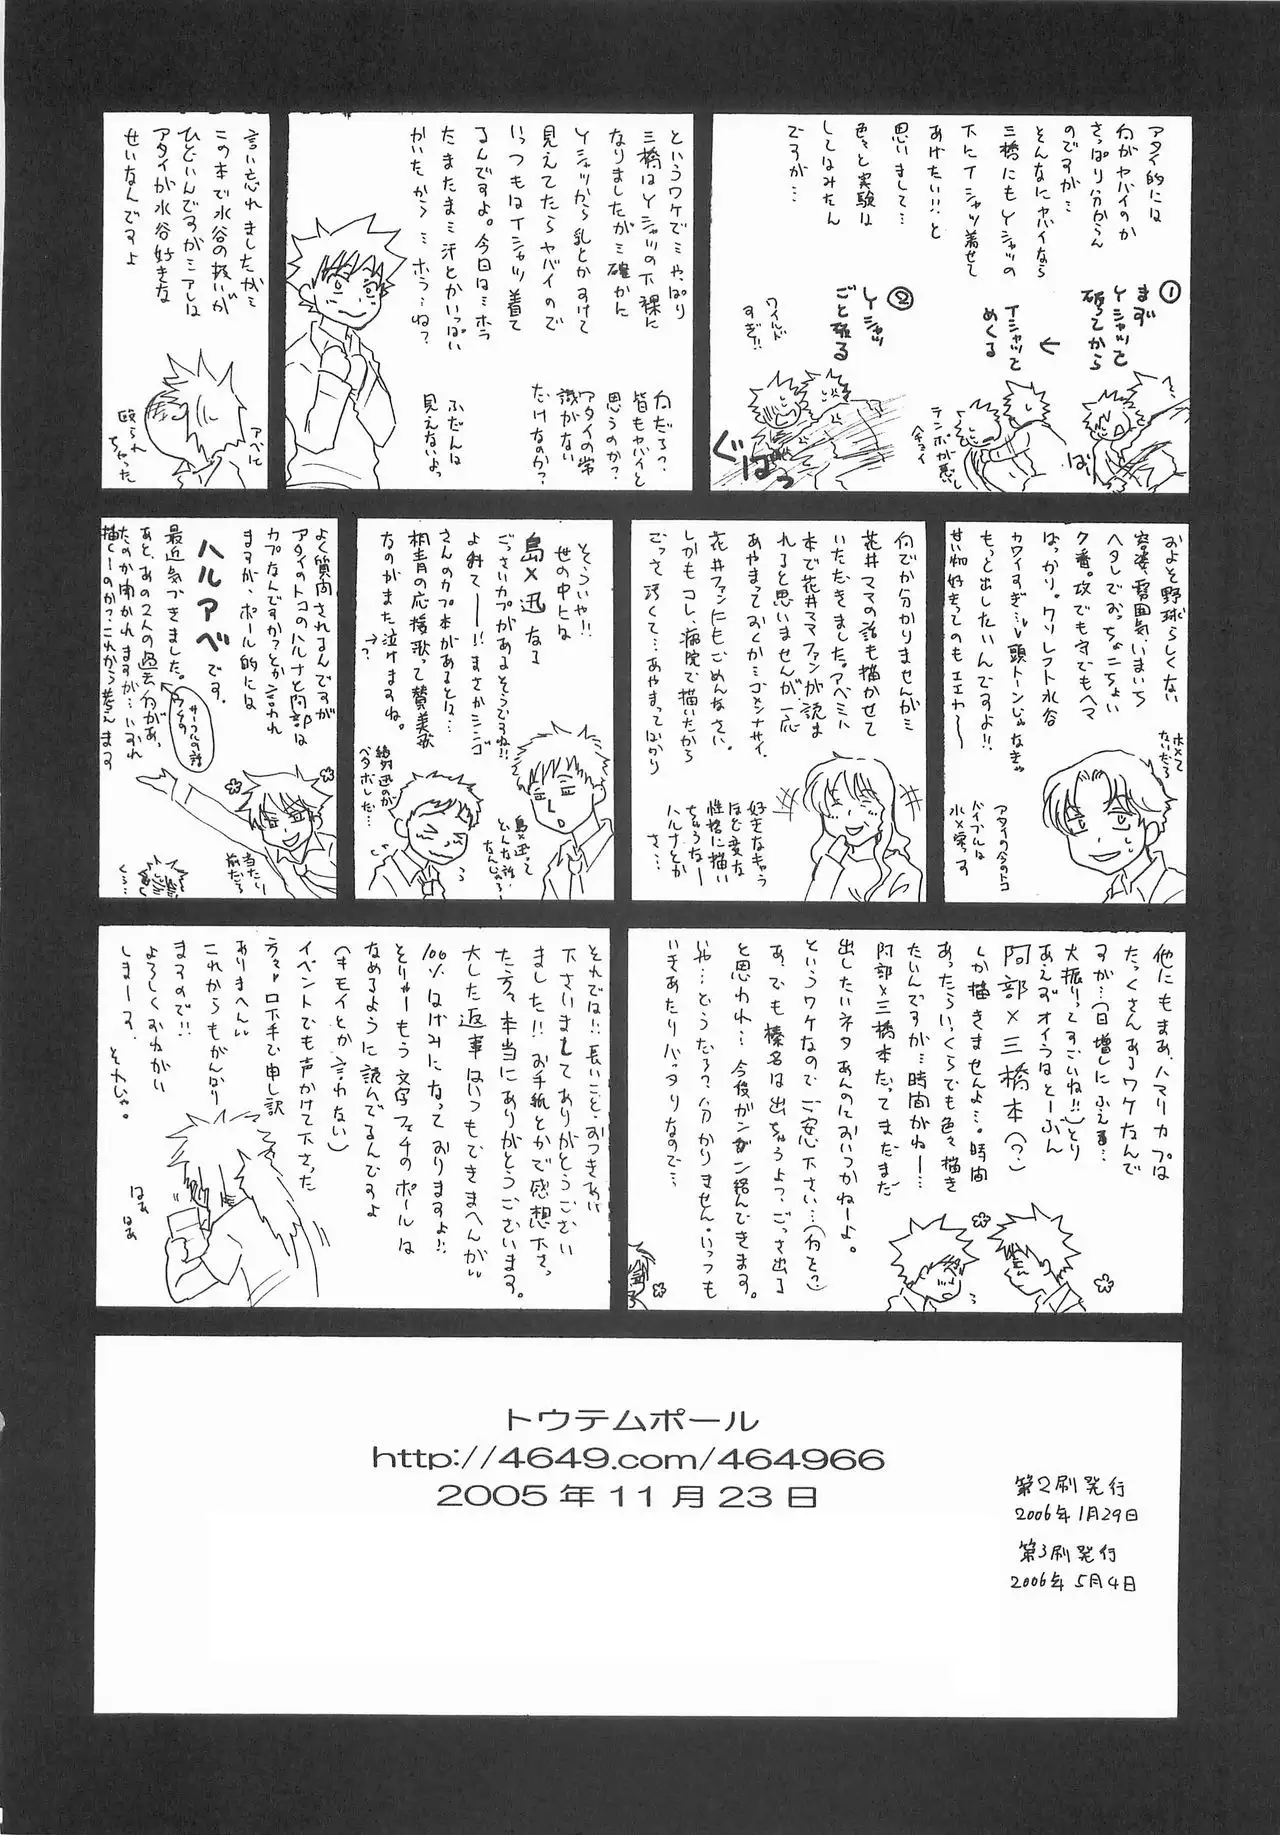 アタイ的には
何がヤバイのか
さっぱり分からん
のですが…
そんなにヤバイなら
三橋にもYシャツの
下にTシャツ着せて
あげたい!!と
思いまして…
色々と実験は
してはみたん
ですが…
①
まず
Yシャツを
破ってから
Tシャツを
めくる
ばり
テンポが悪い
②
Yシャツ
ごと破る
ワイルド
すぎ!!
というワケでミやっぱり
三橋はYシャツの下裸に
なりましたがミ確かに
Yシャツから乳とかすけて
見えてたらヤバイので
いっつもはTシャツ着て
るんですよ。今日はミホラ
たまたまミ汗とかいっぱい
かいたから…ホラ…ね?
何だろう?
皆もヤバイと
思うのか?
アタイの常
識がない
だけなのか?
ふだんは
見えないよっ
言い忘れましたがミ
この本で水谷の扱いが
ひどいんですがミアレは
アタイが水谷好きな
せいなんですよ
アベに
殴られ
ちゃった
およそ野球らしくない
容姿、雰囲気、いまいち
ヘタレでおっちょこちょい
ク番。攻でも守でもヘマ
ばっかり。クソレフト水谷
カワイすぎ…頭トーンじゃなきゃ
もっと出したいんですよ!!
せい
ホメて
ないだろ
アタイの今のトコ
バイブルは
水×栄っす
何でか分かりませんがミ
花井ママの話も描かせて
いただきました。アベミハ
本で花井ママファンが読ま
れると思いませんが一応
あやまっておくかミゴメンナサイ。
花井ファンにもごめんなさい。
しかもコレ、病院で描いたから
ごっさ汚くて…あやまってばかり
好きなキャラ
ほど変な
性格に描い
ちゃうなー
ハルナとか
さ…
そういや!!
世の中には
島×迅なる
ごっさいカプがあるそうですね!!
よ
さんのカプ本があるとは…
桐青の応援歌って賛美歌
なのがまた泣けますね。
→?
島×迅って
どんな話
なんじゃろ
絶対迅のが
ベタボレした…
よく質問されるんですが
アタイのトコのハルナと阿部は
カプなんですか?とか言われ
ますが、ポール的には
ハルアベです。
最近気づきました。
あと、あの2人の過去
たのか聞かれますが…いずれ
描くーのか?これから考えます
当たり
前だろ
くっ…
他にもまあ、ハマリカプは
たっくさんあるワケなんで
すが…(日増しにふえる…
大振りってすごいね!!)とり
あえずオイラはとーぶん
阿部×三橋本(?)
しか描きませんよ…。時間
あったらいくらでも色々描き
たいんですが…時間がねー…
阿部×三橋本だってまだまだ
出したいネタあんのにおいつかねーよ。
というワケなのでご安心下さい…(何を?)
あ、でも榛名は出ちゃうよ?ごっさ出る
と思われ…今後がンガン絡んできます。
いや…どうだろ?分かりません。いっつも
いきあたりバッタリなので…
それでは!!長いこと、おつきあい
下さいましてありがとうござい
ました!!お手紙とかで感想下さっ
た方々、本当にありがとうございます。
大した返事はいつもできまへんが
100%はげみになっておりますよ!!
そりゃーもう文字フェチのポールは
なめるように読んでるんですよ
(キモイとか言わない)
イベントでも声かけて下さった
方々口下手で申し訳
ありまへん
これからもがんばり
ますので!!
よろしくおねがい
しまーす。
それじゃ。
はぁ
はぁ
トウテムポール
http://4649.com/464966
2005年11月23日
第2刷発行
2006年1月29日
第3刷発行
2006年5月4日